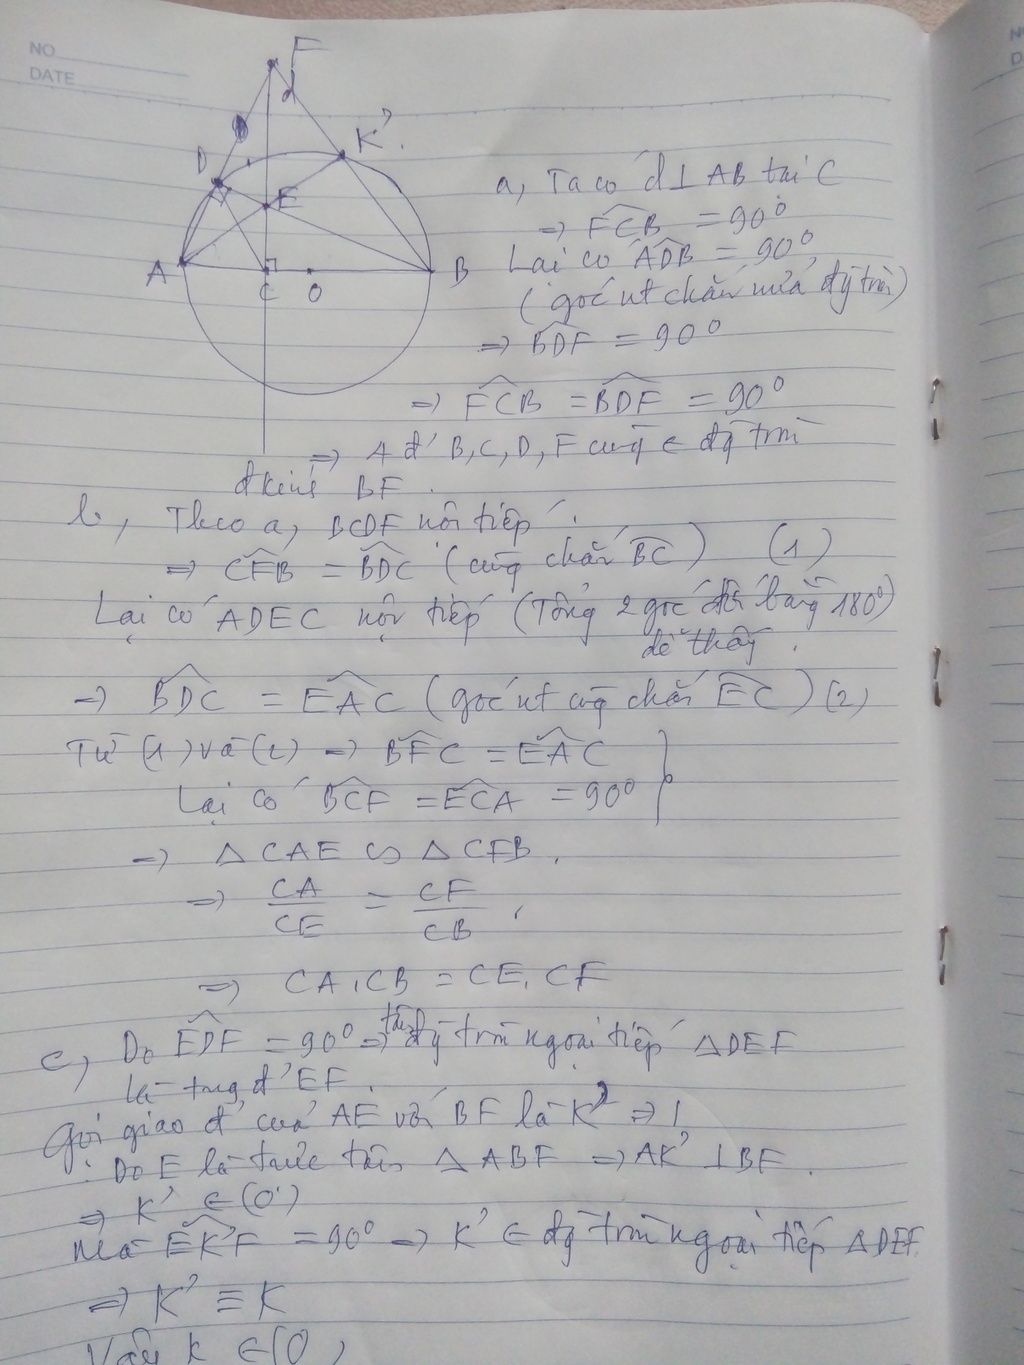 NO
DATE
F
D
K'.
E
A
C
O
B
a, Ta có d ⊥ AB tại C
⇒ FCB = 90°
Lại có ADB = 90°
(góc nt chắn nửa đg tròn)
⇒ BDF = 90°
⇒ FCB = BDF = 90°
⇒ 4 đ' B, C, D, F cùng ∈ đg tròn
đkính BF.
b, Theo a, BCDF nội tiếp.
⇒ CFB = BDC (cùng chắn BC) (1)
Lại có ADEC nội tiếp (Tổng 2 góc đối bằng 180°)
dễ thấy.
⇒ BDC = EAC (góc nt cùng chắn EC) (2)
Từ (1) và (2) ⇒ BFC = EAC
Lại có BCF = ECA = 90°
⇒ Δ CAE ∽ Δ CFB.
⇒ CA/CE = CF/CB
⇒ CA.CB = CE.CF
c, Do EDF = 90° ⇒ tâm đg tròn ngoại tiếp ΔDEF
là trung đ' EF.
Gọi giao đ' của AE với BF là K' ⇒
Do E là trực tâm Δ ABF ⇒ AK' ⊥ BF.
⇒ K' ∈ (O)
Mà EK'F = 90° ⇒ K' ∈ đg tròn ngoại tiếp ΔDEF
⇒ K' ≡ K
Vậy K ∈ (O)
NO
D